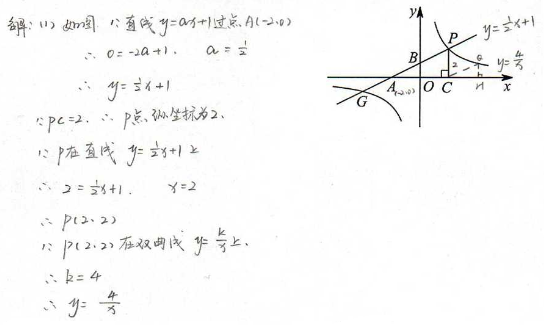 解:(1)如图 ∵直线y=ax+1过点A(-2,0)
∴ 0=-2a+1. a=1/2
∴ y=1/2x+1
∵PC=2. ∴P点纵坐标为2.
∵P在直线 y=1/2x+1上
∴ 2=1/2x+1. x=2
∴ P(2,2)
∵P(2,2)在双曲线 y=k/x上.
∴ k=4
∴ y=4/x
y
y=1/2x+1
P
B
2
Q
y=4/x
A(-2,0) O C H x
G